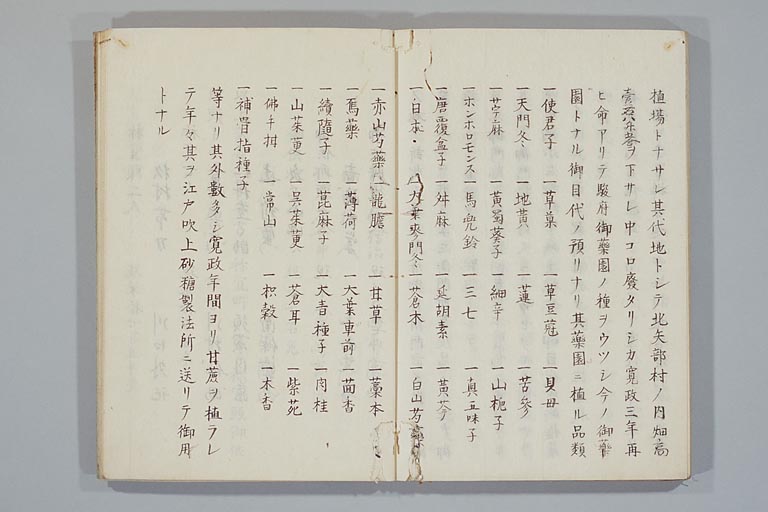 植場トナサレ其代地トシテ北矢部村ノ内畑高
ヲ下サレ中コロ廢タリシカ寛政三年再
ヒ命アリテ駿府御藥園ノ種ヲウツシ今ノ御藥
園トナル御目代ノ預リナリ其藥園ニ植ル品類
一使君子 一草菓 一草豆蔲 一貝母
一天門冬 一地黄 一蓮 一苦参
一苧麻 一黄蜀葵子 一細辛 一山梔子
一ホンホロモンス 一馬兜鈴 一三七 一真五味子
一唐覆盆子 一舛麻 一延胡素 一黄芩
一白朮 一大葉麥門冬 一蒼朮 一白山芍藥
一赤山芍藥 一龍膽 一甘草 一藁本
一烏藥 一薄荷 一大葉車前 一茴香
一續隨子 一萞麻子 一大青種子 一肉桂
一山茱萸 一呉茱萸 一蒼耳 一紫苑
一佛手柑 一常山 一枳穀 一木香
一補骨指種子
等ナリ其外數多シ寛政年間ヨリ甘蔗ヲ植ラレ
テ年々其ヲ江戸吹上砂糖製法所ニ送リテ御用
トナル